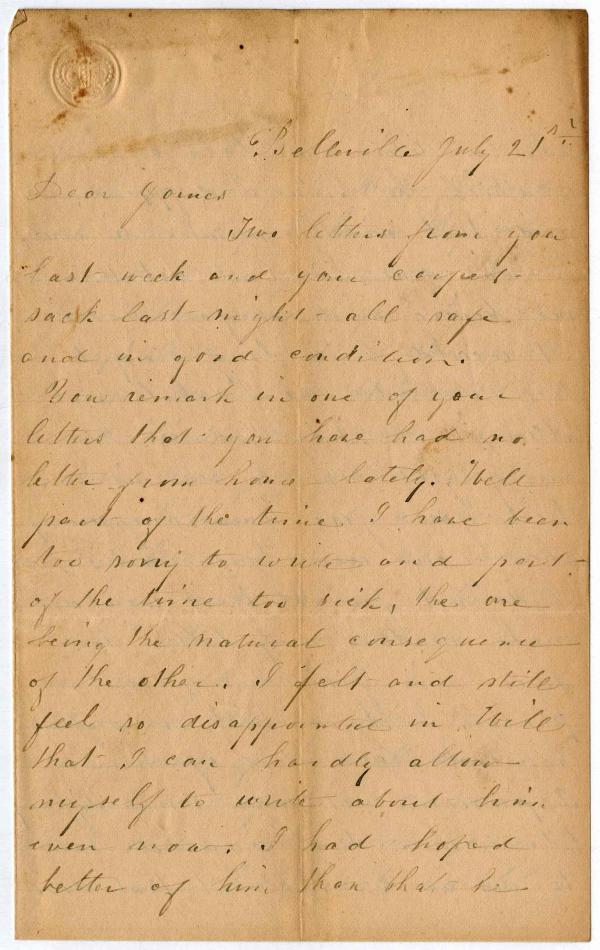 Belleville July 21st
Dear James
Two letters from you
last week and your carpet-
sack last night - all safe
and in good condition.
You remark in one of your
letters that you have had no
letter from home lately. Well
part of the time I have been
too sorry to write and part
of the time too sick, the one
being the natural consequence
of the other. I felt and still
feel so disappointed in Will
that I can hardly allow
myself to write about him
even now. I had hoped
better of him than that he